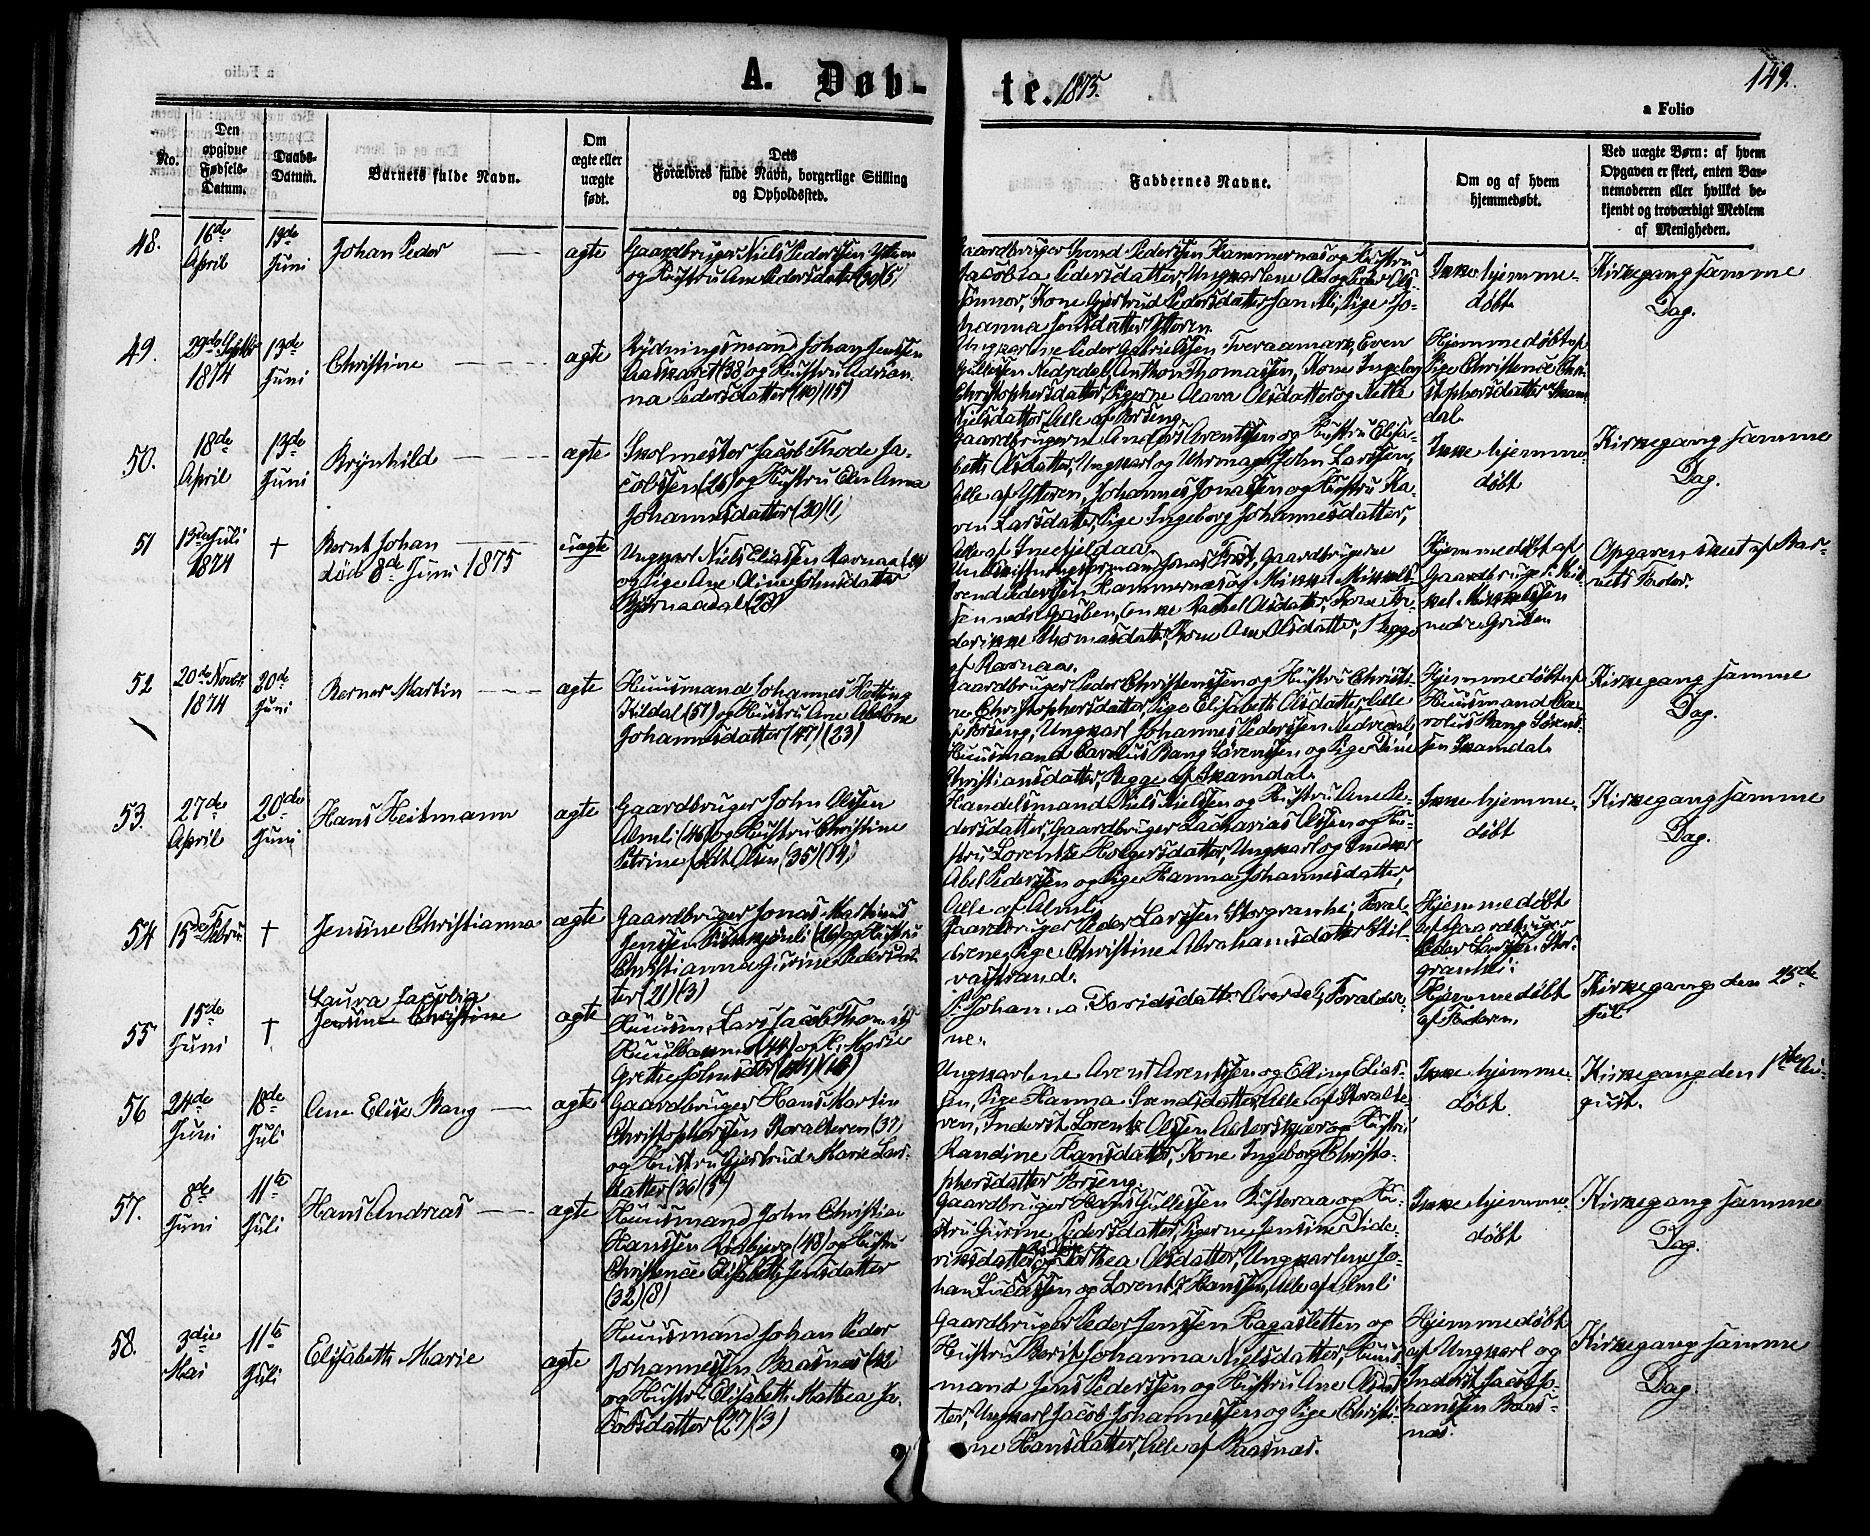 A. Døb-
te. 1875.
149.
a Folio
No.
Den opgivne Fødsels-Datum.
Daabs-Datum.
Barnets fulde Navn.
Om ægte eller uægte født.
Dets Forældres fulde Navn, borgerlige Stilling og Opholdssted.
Faddernes Navne.
Om og af hvem hjemmedøbt.
Ved uægte Børn: af hvem Opgaven er skeet, enten Barnemoderen eller hvilket bekjendt og troværdigt Medlem af Menigheden.
48.
16de April
13de Juni
Johan Peder
ægte
Gaardbruger Niels Pederssen Ytteren
og Hustru Ane Pedersdatter
Gaardbruger Svend Pederssen Hammernæs og Hustru
Jacobia Pedersdatter, Ungkarlene
Kone Gjertrud Pedersdatter Pige Jo-
hanna Jensdatter Ytteren.
Ikke hjemme-
døbt.
Kirkegang samme
Dag.
49.
1874
13de Juni
Christine
ægte
Rydningsmand Johan Jenssen
(38) og Hustru Adrian-
na Pedersdatter (40) (15)
Ungkarlene Peder Gabrielssen Tveraamark, Even
Gullesen Nedredal, Anthon Thomassen, Kone Ingeborg
Christophersdatter, Pigerne Olava Olsdatter og
Nielsdatter, Alle af Forseng.
Hjemmedøbt af
Pige Christence Chri-
stophersdatter Skam-
dal
50.
18de April
13de Juni
Brynhild
ægte
Skolmester Jacob Thode Ja-
cobssen (26) og Hustru Elen Anna
Johannesdatter (20) (1)
Gaardbrugerne Anders Arentssen og Hustru Elisa-
beth Olsdatter, Ungkarl og Uhrmager John Larssen,
Alle af Ytteren, Johannes Jonassen og Hustru Ka-
ren Larsdatter, Pige Ingeborg Johannesdatter,
Ikke hjemme-
døbt
Kirkegang samme
Dag.
51
13de Juli
1874
†
Bernt Johan
døbt 8de Juni 1875
uægte
Ungkarl Niels Eliassen
og Pige Ane Oline Johnsdatter
Bjørnaadal (23)
Jonas Frost, Gaardbrugerne
Svend Pederssen Hammernæs og Mikkel Mikkels-
sen nedre Gruben, Enke Rachel Olsdatter, Kone
Thomasdatter, Kone Ane Olsdatter, Begge
af Ranaa.
Hjemmedøbt af
Gaardbruger Mik-
kel Mikkelssen
nedre Gruben
Opgaven skeet af Bar-
nets Fader.
52
20de Novbr
1874
20de Juni
Berner Martin
ægte
Huusmand Johannes
Kildal (51) og Hustru Ane
Johannesdatter (47) (23)
Gaardbruger Peder Christenssen og Hustru Christi-
ne Christophersdatter, Pige Elisabeth Olsdatter, Alle
af Forseng, Ungkarl Johannes Pederssen Nedredal,
Huusmand Carolus Bang Sørenssen og Pige Dine
Christiansdatter, Begge af Skamdal.
Hjemmedøbt af
Huusmand Ca-
rolus Bang Sørens-
sen Skamdal.
Kirkegang samme
Dag.
53.
27de April
20de Juni
Hans Heitmann
ægte
Gaardbruger John Olssen
Almli (46) og Hustru Christine
Petrine født Olsen (35) (14)
Handelsmand Niels Nielssen og Hustru Ane Pe-
dersdatter, Gaardbruger Zacharias Olssen og Hu-
stru Lorentze Holgersdatter, Ungkarl og Snedker
Abel Pederssen og Pige Hanna Johannesdatter,
Alle af Almli.
Ikke hjemme-
døbt
Kirkegang samme
Dag.
54
15de Febru
†
Jensine Christianna
ægte
Gaardbruger Jonas Martinus
Jenssen og Hustru
Christianna Gurine Pedersdat-
ter (21) (3)
Gaardbruger Peder Larssen Storgranhei, Foræl-
drene, Pige Christine Abrahamsdatter Stil-
vasstrand.
Hjemmedøbt
af Gaardbruger
Peder Larssen Stor-
granhei.
55
15de Juni
†
Laura Jacobia
Jensine Christine
ægte
Huusm. Lars Jacob Thomassen
(44) og H. Marie
Grethe Johnsdtr
P. Johanna Davidsdatter Forældre-
ne.
Hjemmedøbt
af Faderen.
Kirkegang den 25de
Juli
56
24de Juni
18de Juli
Ane Elise Bang
ægte
Gaardbruger Hans Martin
Christopherssen Storalteren (37)
og Hustru Gjertrud Marie Lars-
datter (36) (5)
Ungkarlene Arent Arentssen og Elling Elias-
sen, Pige Hanna Svendsdatter, Alle af Storalte-
ren, Inderst Lorents Olssen Alterskjær og Hustru
Randine Hansdatter, Kone Ingeborg Christo-
phersdatter Forseng.
Ikke hjemme-
døbt.
Kirkegang den 1ste Au-
gust.
57.
8de Juni
11te Juli
Hans Andreas
ægte
Huusmand John Christian
Hanssen (48) og Hustru
Christence Elisabeth Jensdatter
(32) (8)
Gaardbruger Hans Gullessen og Hu-
stru Gurine Pedersdatter, Pigerne Jensine Dide-
riksdatter og Dorthea Olsdatter, Ungkarlene Jo-
han Lucassen og Lorents Hanssen, Alle af Almli
Ikke hjemme-
døbt
Kirkegang samme
Dag.
58.
3die Mai
11te Juli
Elisabeth Marie
ægte
Huusmand Johan Peder
Johannessen Baasnæs
og Hustru Elisabeth Mathea Ja-
cobsdatter (27) (3)
Gaardbruger Peder Jenssen Hagasletten og
Hustru Berit Johanna Nielsdatter, Huus-
mand Jens Pederssen og Hustru Ane Olsdat-
ter, Ungkarl Jacob Johannessen og Pige Christi-
ne Hansdatter, Alle af Baasnæs.
Hjemmedøbt
af Ungkarl og
Inderst Jacob Jo-
hanssen Baas-
næs.
Kirkegang samme
Dag.